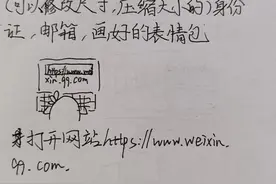 (可以修改尺寸,压缩大小的)身份
证,邮箱,画好的表情包
https://www.wei
xin.qq.com
打开网站https://www.weixin.
qq.com.